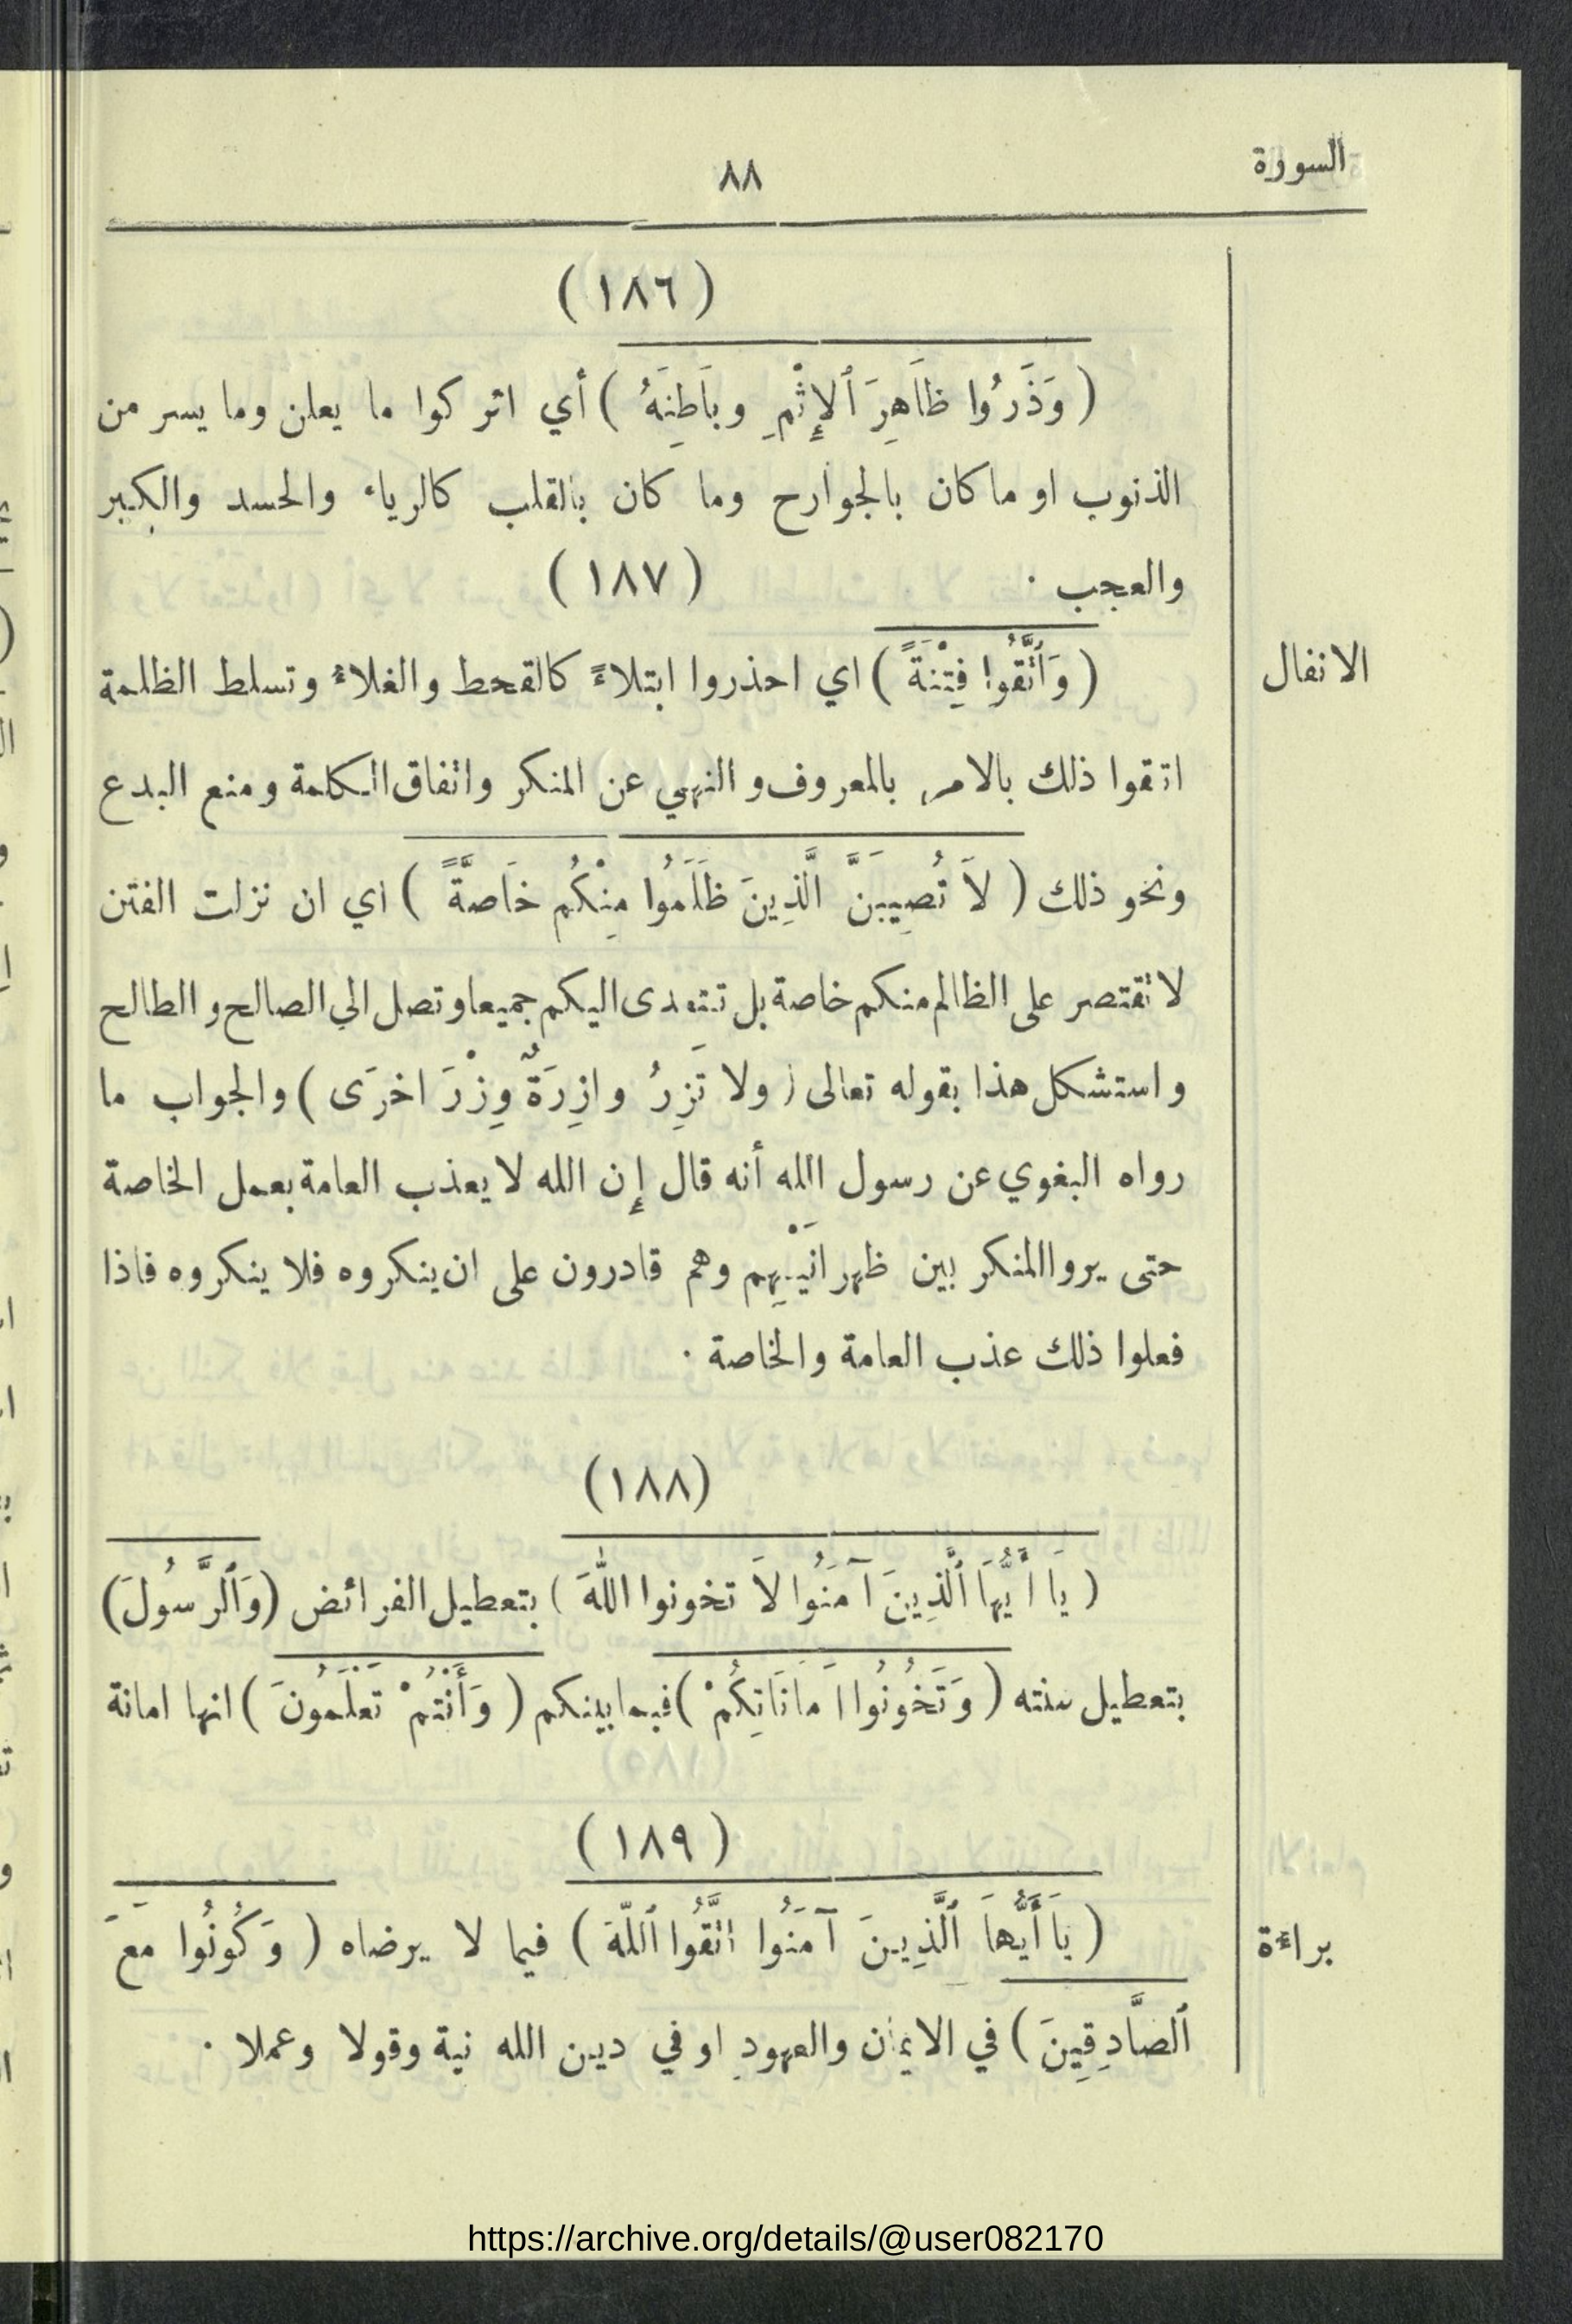 السورة
٨٨
( ١٨٦ )
( وَذَرُوا ظَاهِرَ ٱلإِثْمِ وبَاطِنَهُ ) أي اتركوا ما يعلن وما يسر من
الذنوب او ما كان بالجوارح وما كان بالقلب كالرياء والحسد والكبر
والعجب ·
( ١٨٧ )
الانفال
( وَٱتَّقُوا فِتْنَةً ) اي احذروا ابتلاءً كالقحط والغلاء وتسلط الظلمة
اتقوا ذلك بالامر بالمعروف والنهي عن المنكر واتفاق الكلمة ومنع البدع
ونحو ذلك ( لاَ تُصِيبَنَّ الَّذِينَ ظَلَمُوا مِنْكُم خَاصَّةً ) اي ان نزلت الفتن
لا تقتصر على الظالم منكم خاصة بل تتعدى اليكم جميعا وتصل الى الصالح والطالح
واستشكل هذا بقوله تعالى ( ولا تَزِرُ وازِرَةٌ وِزْرَ اخرَى ) والجواب ما
رواه البغوي عن رسول الله أنه قال إن الله لا يعذب العامة بعمل الخاصة
حتى يروا المنكر بين ظهرانَيْهِم وهم قادرون على ان ينكروه فلا ينكروه فاذا
فعلوا ذلك عذب العامة والخاصة ·
(١٨٨)
( يَا أَيُّهَا ٱلَّذِينَ آمَنُوا لاَ تخونوا اللهَ ) بتعطيل الفرائض (وَٱلرَّسُولَ)
بتعطيل سنته ( وَتَخُونُوا اَمَانَاتِكُمْ ) فيما بينكم ( وَأَنْتُمْ تَعْلَمُونَ ) انها امانة
( ١٨٩ )
براءة
( يَا أَيُّهَا ٱلَّذِينَ آمَنُوا اتَّقُوا ٱللّهَ ) فيما لا يرضاه ( وَكُونُوا مَعَ
ٱلصَّادِقِينَ ) في الايمان والعهود او في دين الله نية وقولا وعملا ·
https://archive.org/details/@user082170